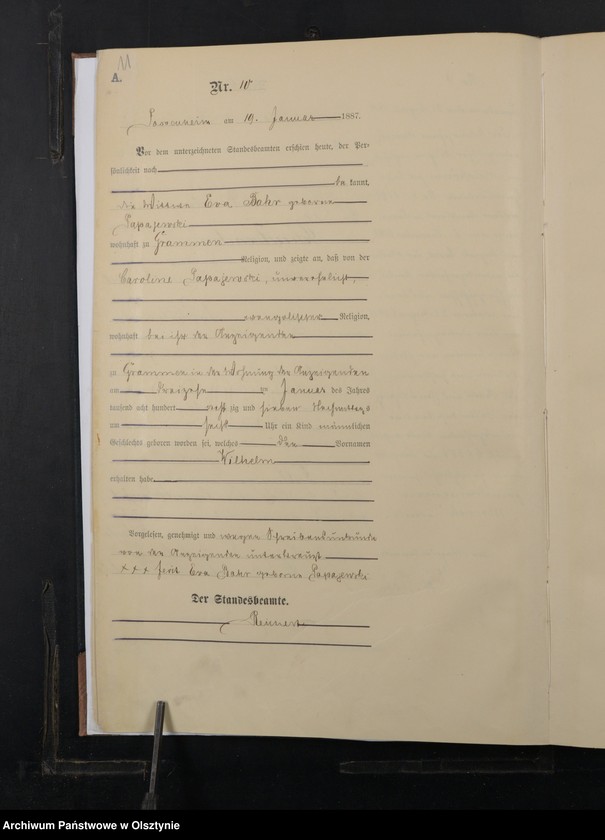 11
A.
Nr. 10
am 19. Januar 1887.
Vor dem unterzeichneten Standesbeamten erschien heute, der Per-
sönlichkeit nach
be kannt,
die Wittwe Eva Bahr geborene
Papajewski
wohnhaft zu Grammen
Religion, und zeigte an, daß von der
Caroline Papajewski, unverehelicht,
evangelischer Religion,
wohnhaft bei ihr der Anzeigenden
zu Grammen in der Wohnung der Anzeigenden
am dreizehn ten Januar des Jahres
tausend acht hundert acht zig und sieben Nachmittags
um Uhr ein Kind männlichen
Geschlechts geboren worden sei, welches den Vornamen
Wilhelm
erhalten habe
Vorgelesen, genehmigt und wegen Schreibensunkunde
von der Anzeigenden unterkreuzt
xxx Eva Bahr geborene Papajewski
Der Standesbeamte.
Archiwum Państwowe w Olsztynie